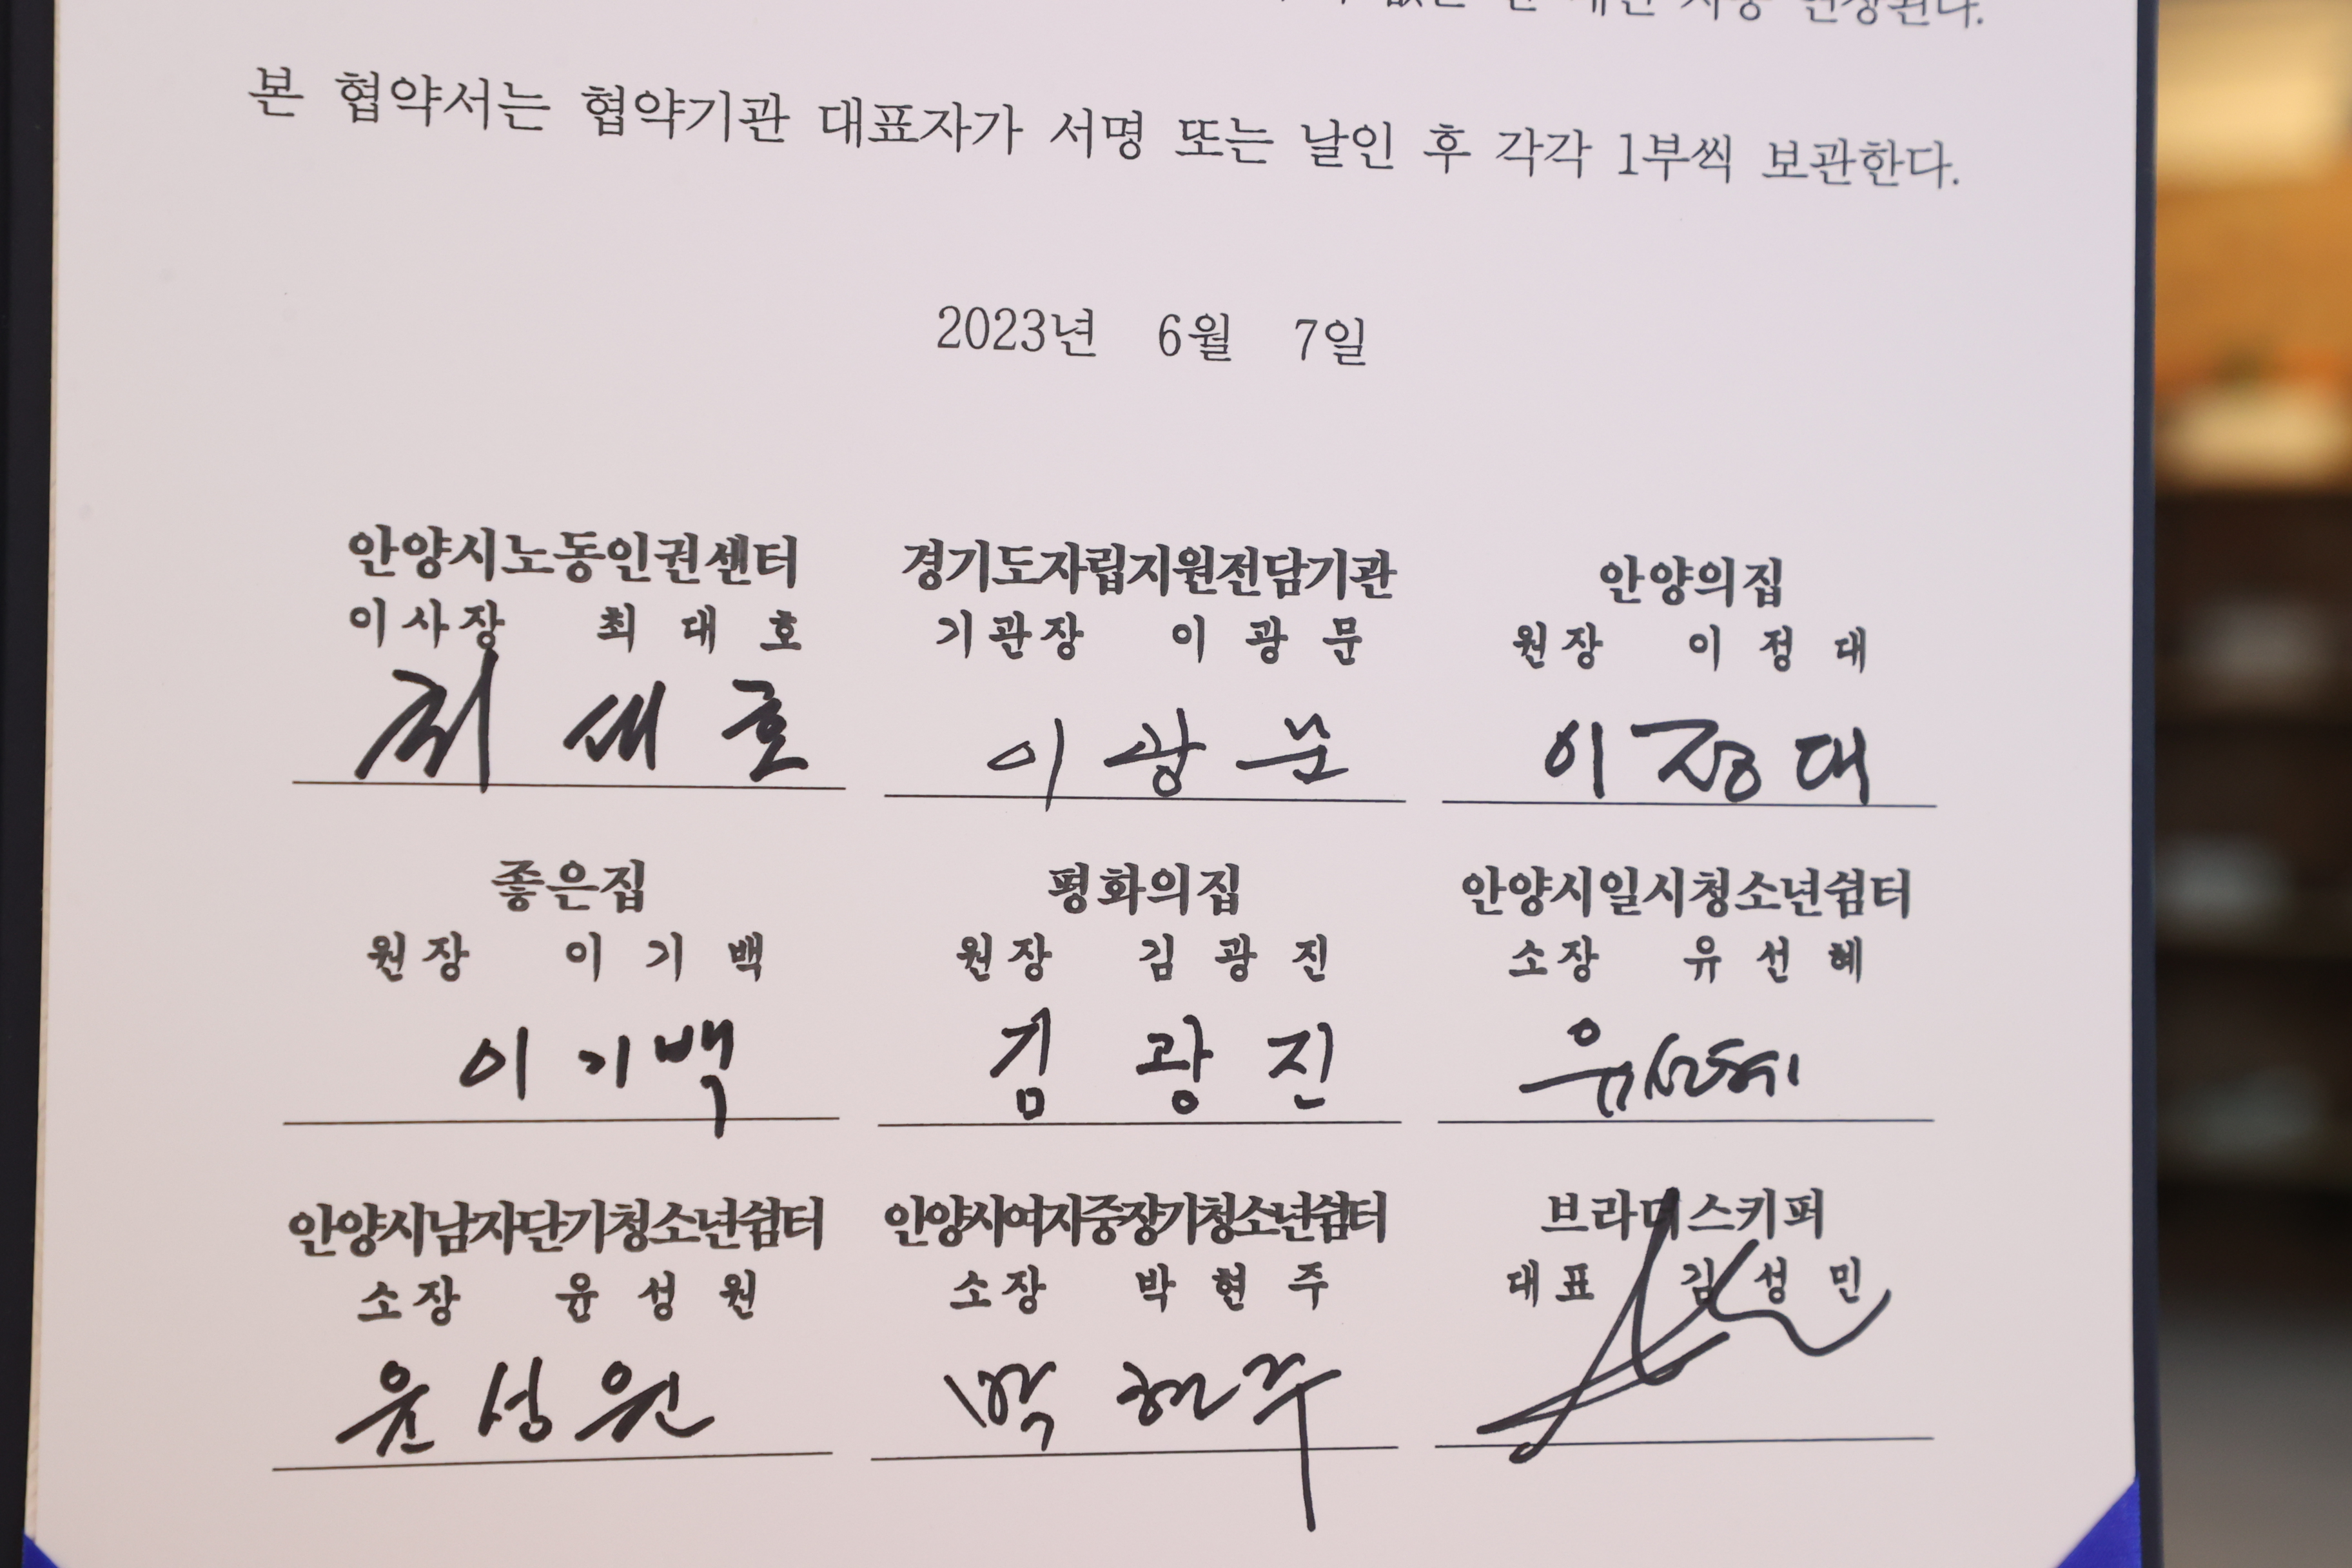 연장된다.
본 협약서는 협약기관 대표자가 서명 또는 날인 후 각각 1부씩 보관한다.
2023년 6월 7일
안양시노동인권센터
이사장 최 대 호
최 대 호
경기도자립지원전담기관
기관장 이 광 문
이 광 문
안양의집
원장 이 정 대
이 정 대
좋은집
원장 이 기 백
이 기 백
평화의집
원장 김 광 진
김 광 진
안양시일시청소년쉼터
소장 유 선 혜
유선혜
안양시남자단기청소년쉼터
소장 윤 성 원
윤 성 원
안양시여자중장기청소년쉼터
소장 박 현 주
박 현 주
브라더스키퍼
대표 김 성 민